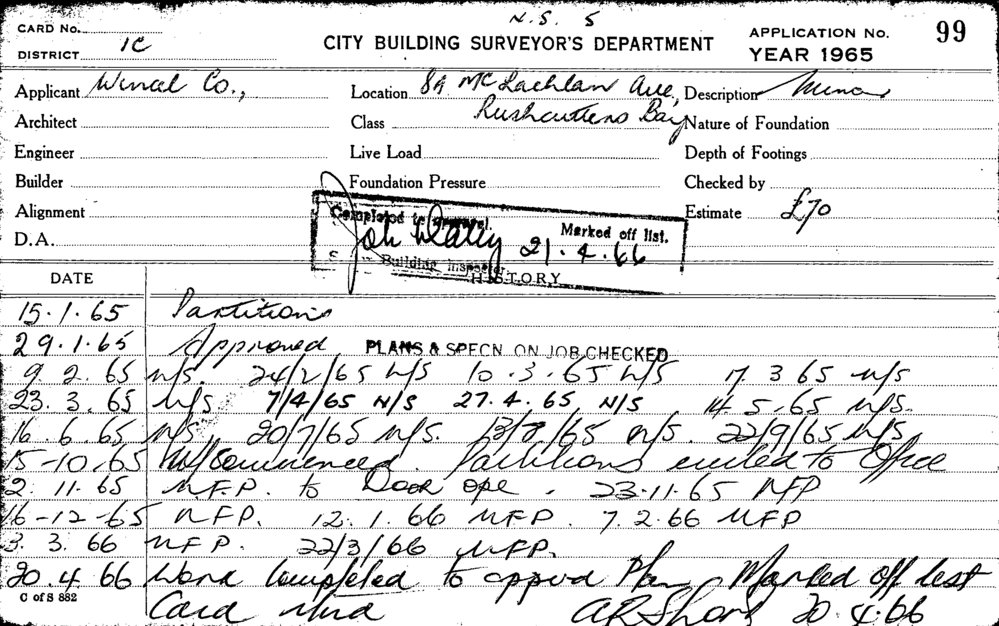 N.S. 5
CARD No. CITY BUILDING SURVEYOR'S DEPARTMENT APPLICATION No. 99
DISTRICT 1C YEAR 1965
Applicant Wincal Co., Location 8A McLachlan Ave, Description Minor
Architect Class Rushcutters Bay Nature of Foundation
Engineer Live Load Depth of Footings
Builder Foundation Pressure Checked by
Alignment Completed to approval. Marked off list. Estimate £70
D.A. 21.4.66
Building Inspector
HISTORY
DATE
15.1.65 Partitions
29.1.65 Approved PLANS & SPECN. ON JOB CHECKED
9 2. 65 N/S. 24/2/65 N/S 10.3.65 N/S 17. 3 65 N/S
23. 3. 65 N/S 7/4/65 N/S 27.4.65 N/S 14 5.65 N/S.
16.6.65 N/S, 20/7/65 N/S. 13/8/65 N/S. 22/9/65 N/S,
15-10.65 Commenced. Partitions to Office
2. 11.65 N.F.P. to Door ope. 23.11.65 NFP
16-12-65 N.F.P. 12.1.66 NFP. 7.2.66 NFP
3. 3. 66 N F P. 22/3/66 NFP.
20.4 66 Work Completed to Plan Marked off list
C of S 882
Card A R Short 20.4.66